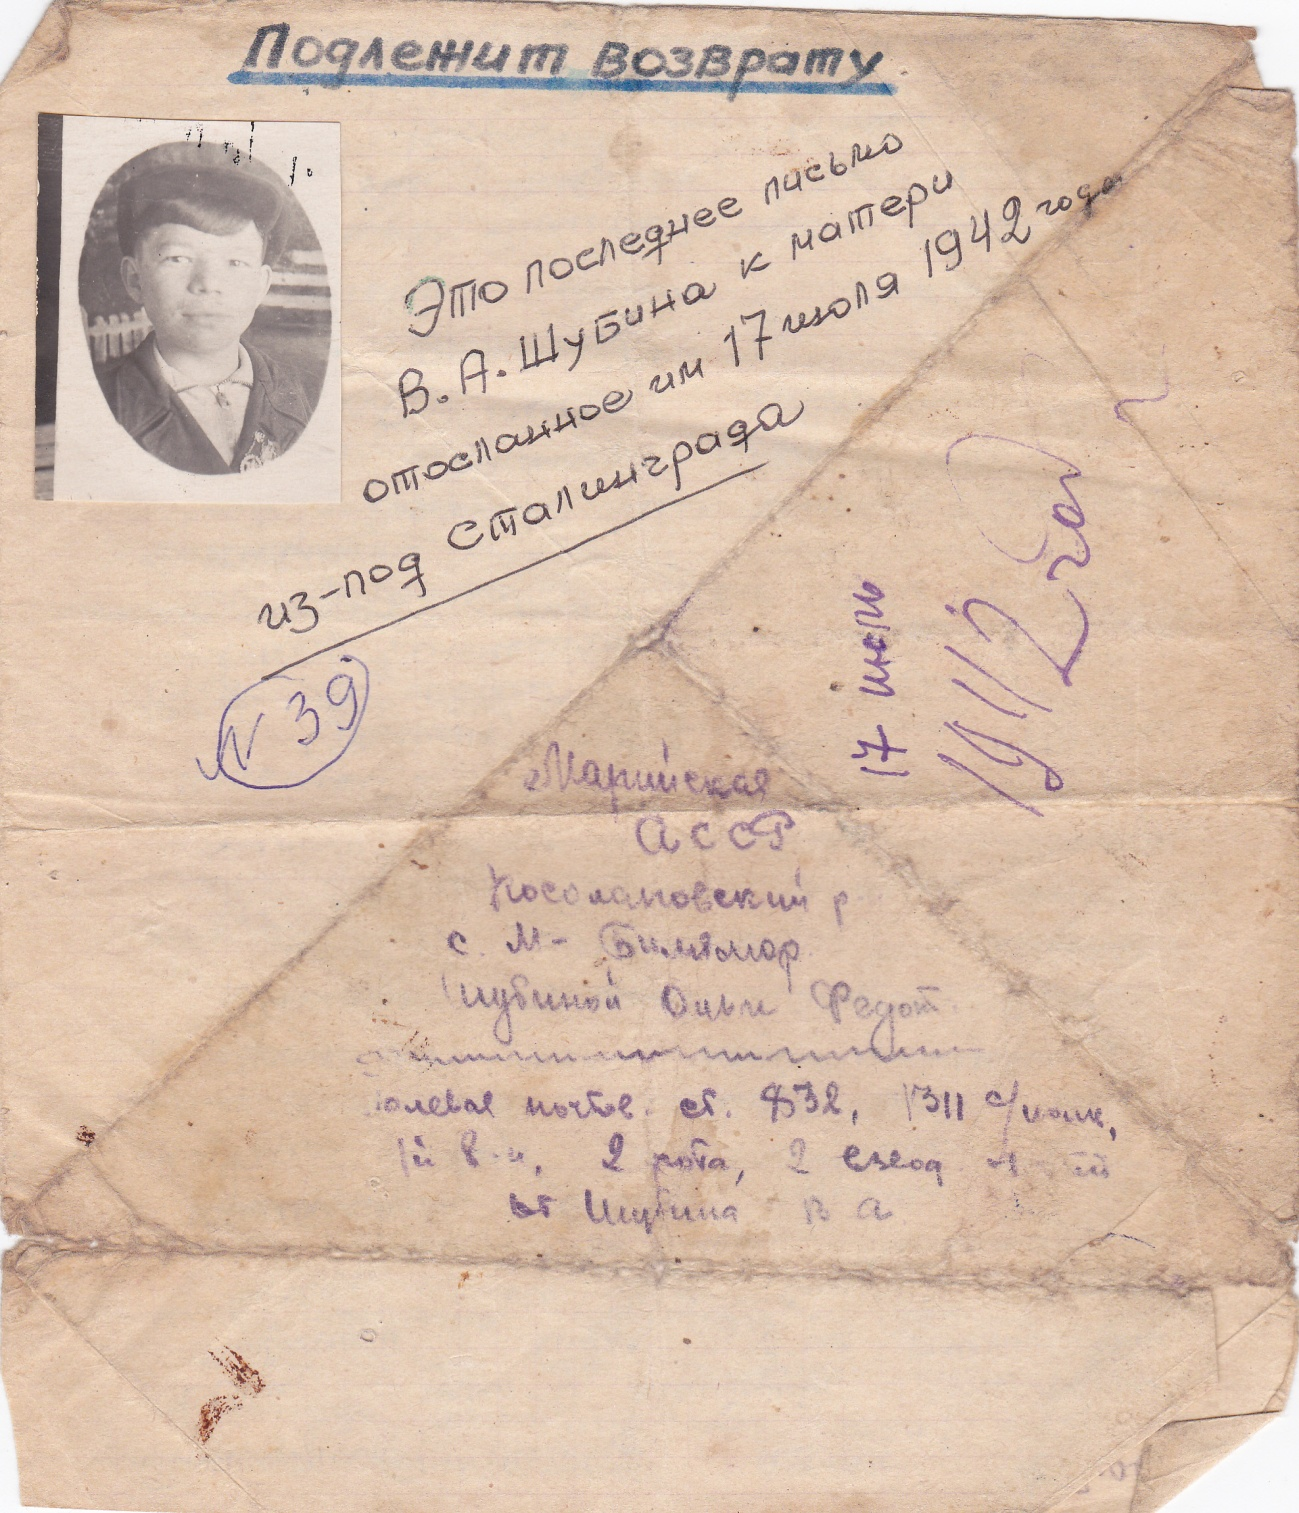 Подлежит возврату
Это последнее письмо
В. А. Шубина к матери
отосланное им 17 июля 1942 года
из-под Сталинграда
N 39
17 июль
1942 год
Марийская
АССР
Косолаповский р
с. М- Билямор
Шубиной Ольги Федот.
полевая почтов. ст. 832, 1311 с/полк,
2 рота, 2 взвод
от Шубина В А